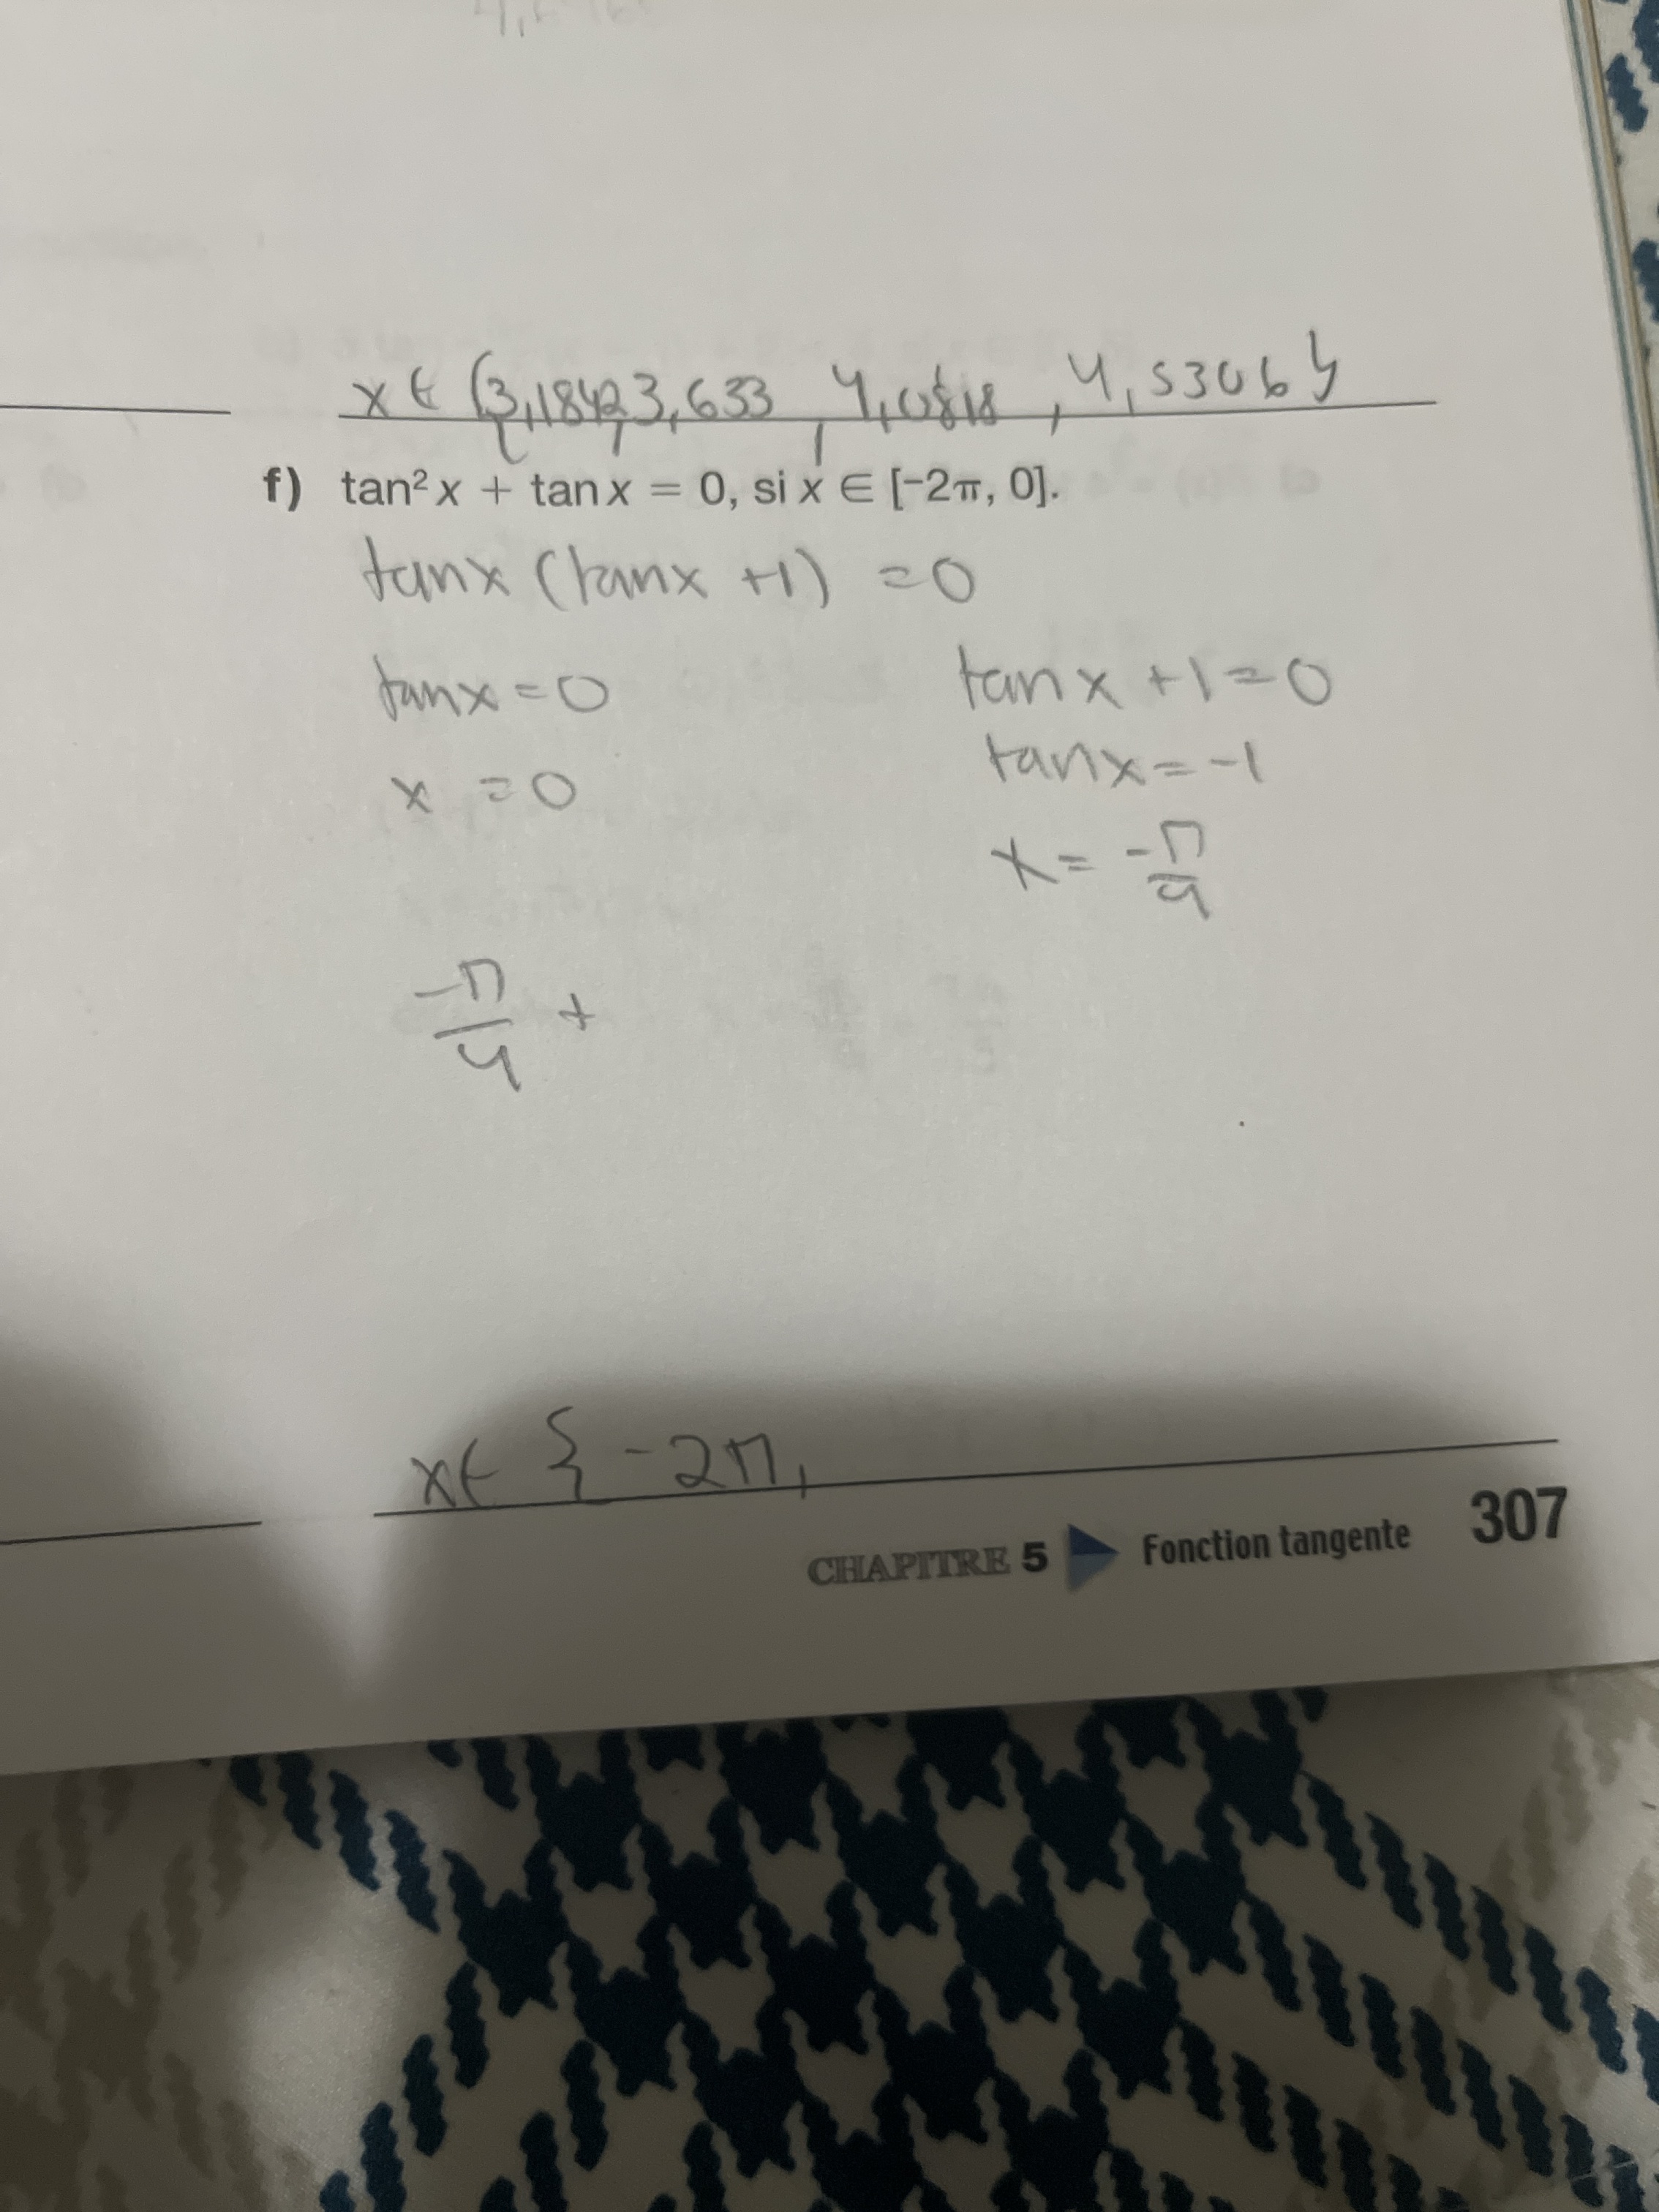 x ∈ {3,1842, 3,633, 4,0818, 4,5306}
f) tan² x + tan x = 0, si x ∈ [-2π, 0].
tanx (tanx +1) = 0
tanx = 0 tanx + 1 = 0
tanx = -1
x = 0
x = -π/4
-π/4 +
x ∈ { -2π,
CHAPITRE 5 Fonction tangente 307